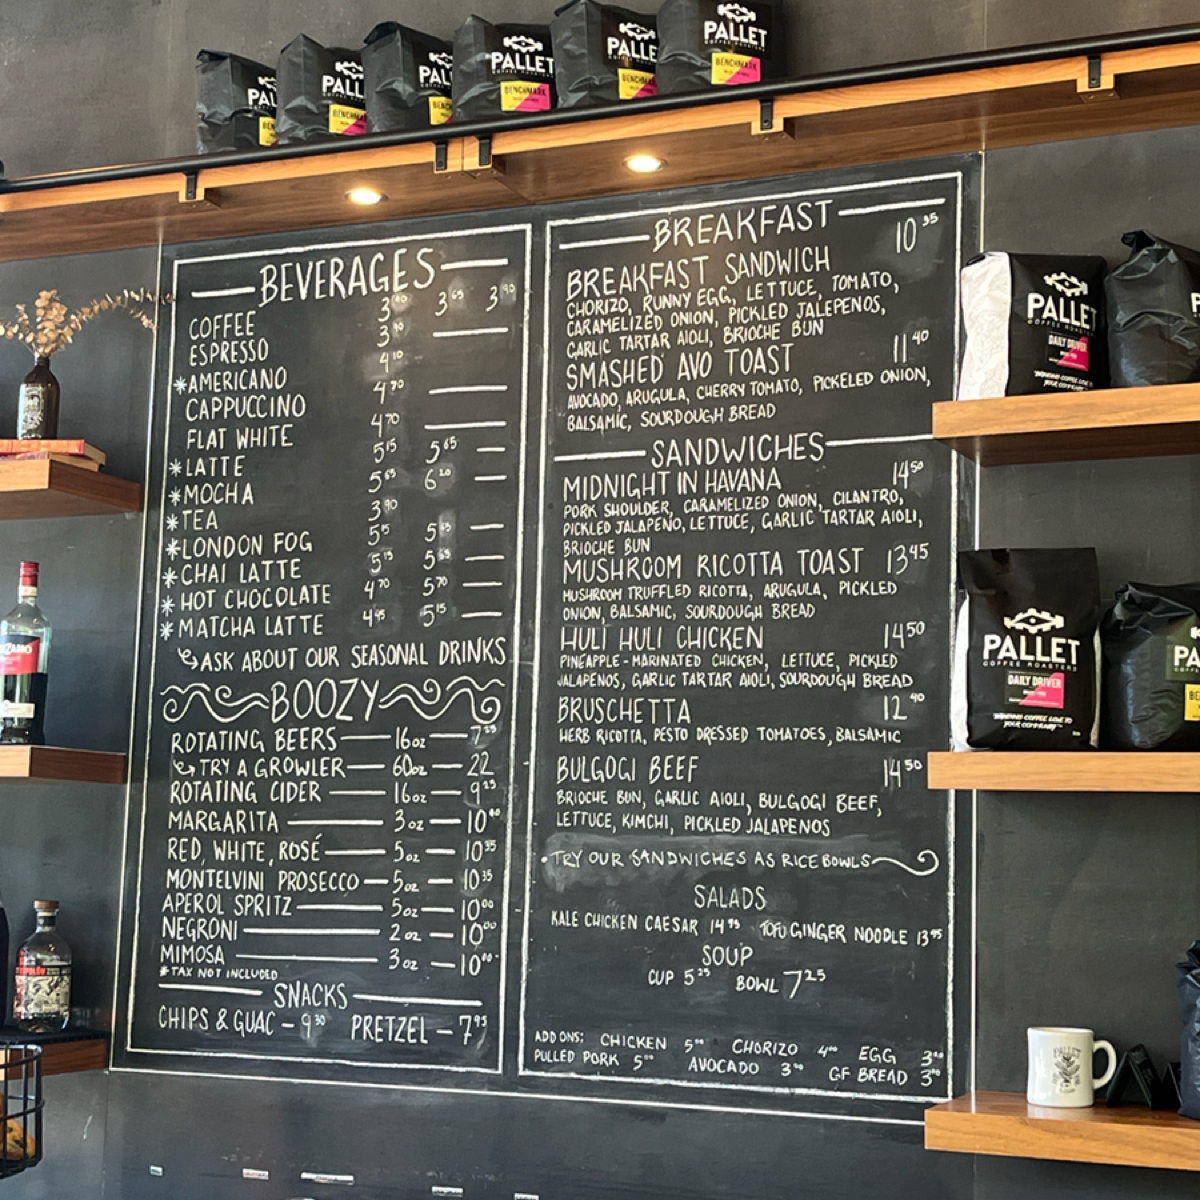 PALLET
COFFEE ROASTERS
BENCHMARK
PALLET
COFFEE ROASTERS
BENCHMARK
PALLET
COFFEE ROASTERS
DAILY DRIVER
PALLET
COFFEE ROASTERS
DAILY DRIVER
BEVERAGES
COFFEE 3 3 65 3 90
ESPRESSO 3
*AMERICANO 4 10
CAPPUCCINO 4 70
FLAT WHITE 4 70
*LATTE 5 15 5 65
*MOCHA 5 65 6 20
*TEA 3 90
*LONDON FOG 5 5
*CHAI LATTE 5 15 5
*HOT CHOCOLATE 4 70 5 70
*MATCHA LATTE 4 95 5 15
ASK ABOUT OUR SEASONAL DRINKS
BOOZY
ROTATING BEERS — 16oz — 7
TRY A GROWLER — 60oz — 22
ROTATING CIDER — 16oz — 9 25
MARGARITA — 3oz — 10
RED, WHITE, ROSÉ — 5oz — 10 35
MONTELVINI PROSECCO — 5oz — 10 35
APEROL SPRITZ — 5oz — 10 00
NEGRONI — 2oz — 10 00
MIMOSA — 3oz — 10
*TAX NOT INCLUDED
SNACKS
CHIPS & GUAC – 9 30 PRETZEL – 7 95
BREAKFAST
BREAKFAST SANDWICH 10 35
CHORIZO, RUNNY EGG, LETTUCE, TOMATO,
CARAMELIZED ONION, PICKLED JALEPENOS,
GARLIC TARTAR AIOLI, BRIOCHE BUN
SMASHED AVO TOAST 11 40
AVOCADO, ARUGULA, CHERRY TOMATO, PICKELED ONION,
BALSAMIC, SOURDOUGH BREAD
SANDWICHES
MIDNIGHT IN HAVANA 14 50
PORK SHOULDER, CARAMELIZED ONION, CILANTRO,
PICKLED JALAPEÑO, LETTUCE, GARLIC TARTAR AIOLI,
BRIOCHE BUN
MUSHROOM RICOTTA TOAST 13 45
MUSHROOM TRUFFLED RICOTTA, ARUGULA, PICKLED
ONION, BALSAMIC, SOURDOUGH BREAD
HULI HULI CHICKEN 14 50
PINEAPPLE-MARINATED CHICKEN, LETTUCE, PICKLED
JALAPENOS, GARLIC TARTAR AIOLI, SOURDOUGH BREAD
BRUSCHETTA 12 40
HERB RICOTTA, PESTO DRESSED TOMATOES, BALSAMIC
BULGOGI BEEF 14 50
BRIOCHE BUN, GARLIC AIOLI, BULGOGI BEEF,
LETTUCE, KIMCHI, PICKLED JALAPENOS
•TRY OUR SANDWICHES AS RICE BOWLS
SALADS
KALE CHICKEN CAESAR 14 95 TOFU GINGER NOODLE 13 95
SOUP
CUP 5 25 BOWL 7 25
ADD ONS: CHICKEN 5 00 CHORIZO 4 00 EGG 3
PULLED PORK 5 00 AVOCADO 3 GF BREAD 3